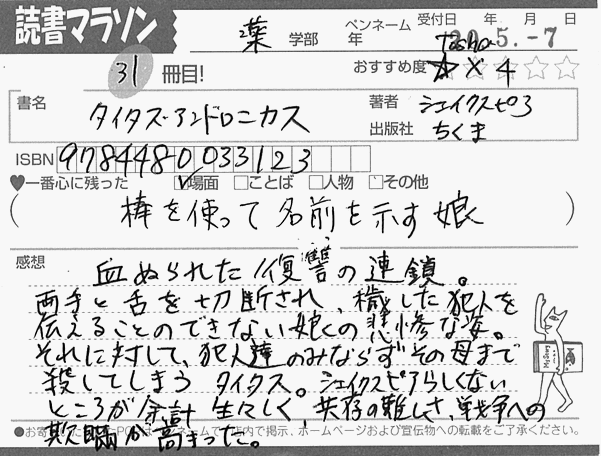 読書マラソン
薬 学部 年 ペンネーム Tosho 受付日 年 月 日
20.5.-7
31 冊目! おすすめ度 ☆×4 ☆☆
書名 タイタス・アンドロニカス 著者 シェイクスピア
出版社 ちくま
ISBN 9784480033123
♥一番心に残った ☑場面 □ことば □人物 □その他
(棒を使って名前を示す娘)
感想 血ぬられた復讐の連鎖。
両手と舌を切断され、穢した犯人を
伝えることのできない娘の悲惨な姿。
それに対して、犯人達のみならずその母まで
殺してしまうタイタス。シェイクスピアらしくない
ところが余計生々しく、共存の難しさ、戦争への
欺瞞が高まった。
●お寄せいただいたPOPはペンネームで店内で掲示、ホームページおよび宣伝物への転載をご了承ください。